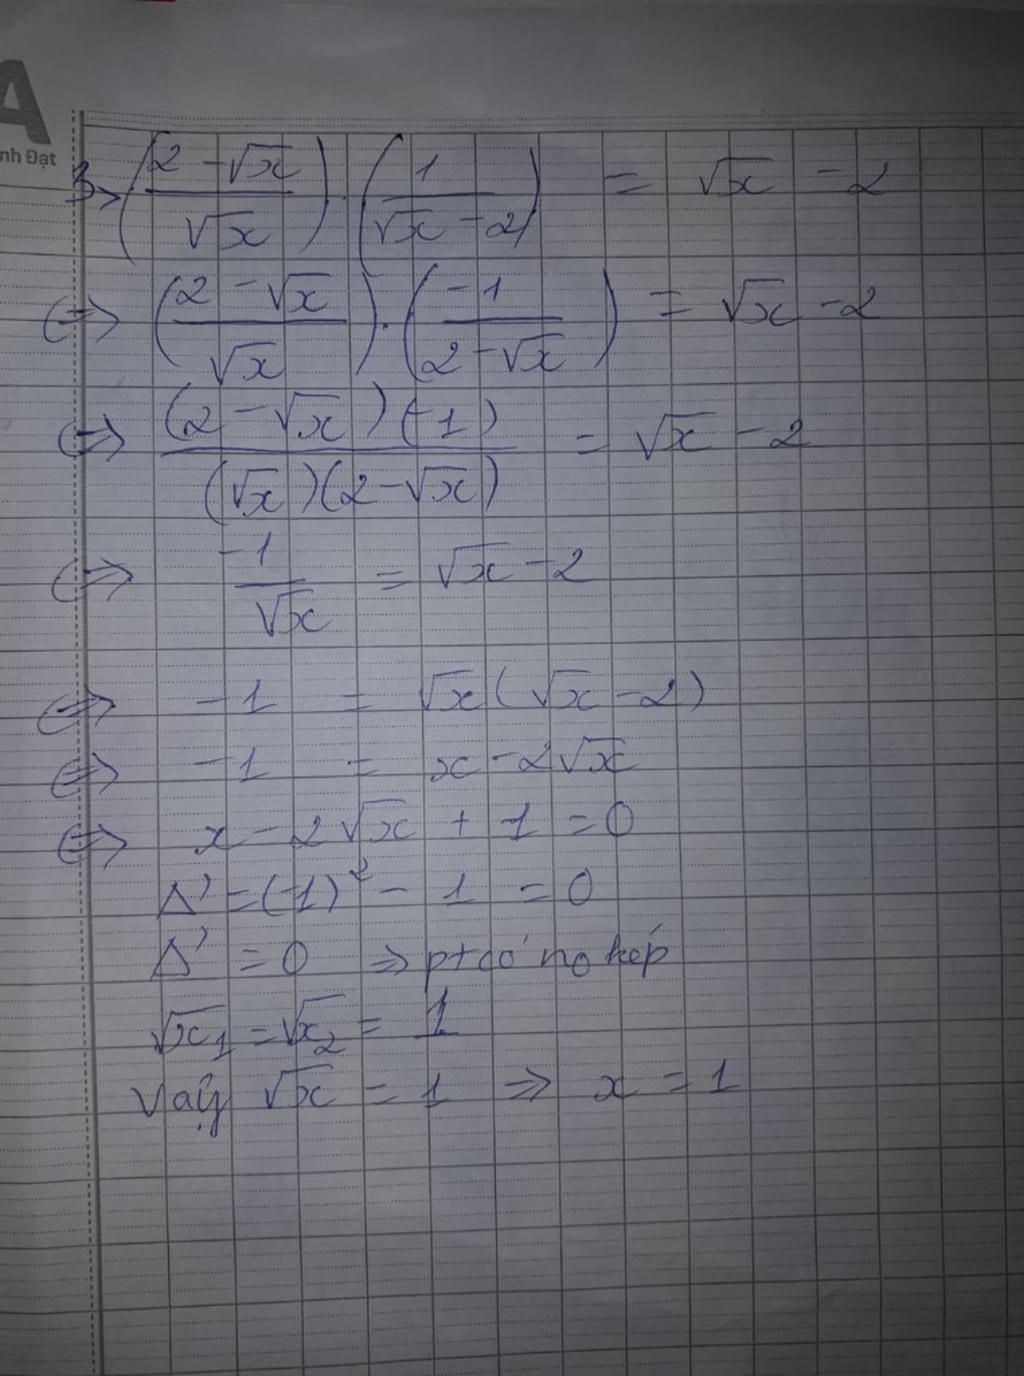 A
nh Đạt
3> ((2 - √x)/√x) . (1/(√x - 2)) = √x - 2
<=> ((2 - √x)/√x) . (-1/(2 - √x)) = √x - 2
<=> ((2 - √x)(-1))/((√x)(2 - √x)) = √x - 2
<=> -1/√x = √x - 2
<=> -1 = √x(√x - 2)
<=> -1 = x - 2√x
<=> x - 2√x + 1 = 0
Δ' = (-1)² - 1 = 0
Δ' = 0 => pt có no kép
√x₁ = √x₂ = 1
Vậy √x = 1 => x = 1